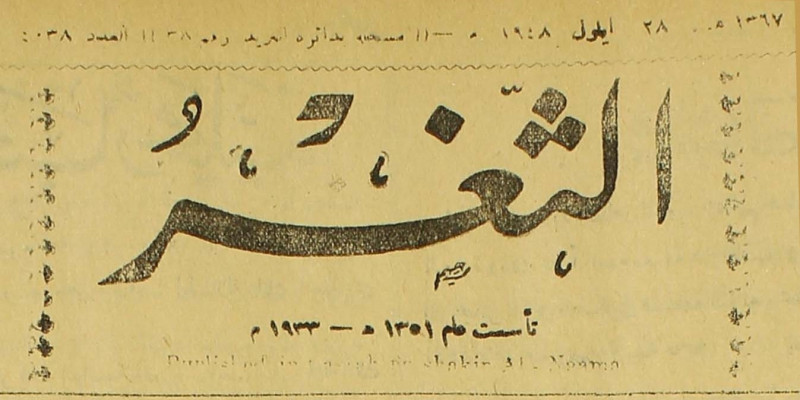 ١٣٦٧ هـ ٢٨ ايلول ١٩٤٨ م — مسجلة بدائرة البريد رقم ٣٨ العدد ٤٠٣٨
الثَّغْرُ
تأسست عام ١٣٥١ هـ — ١٩٣٣ م
Published in shakir Al - Neama